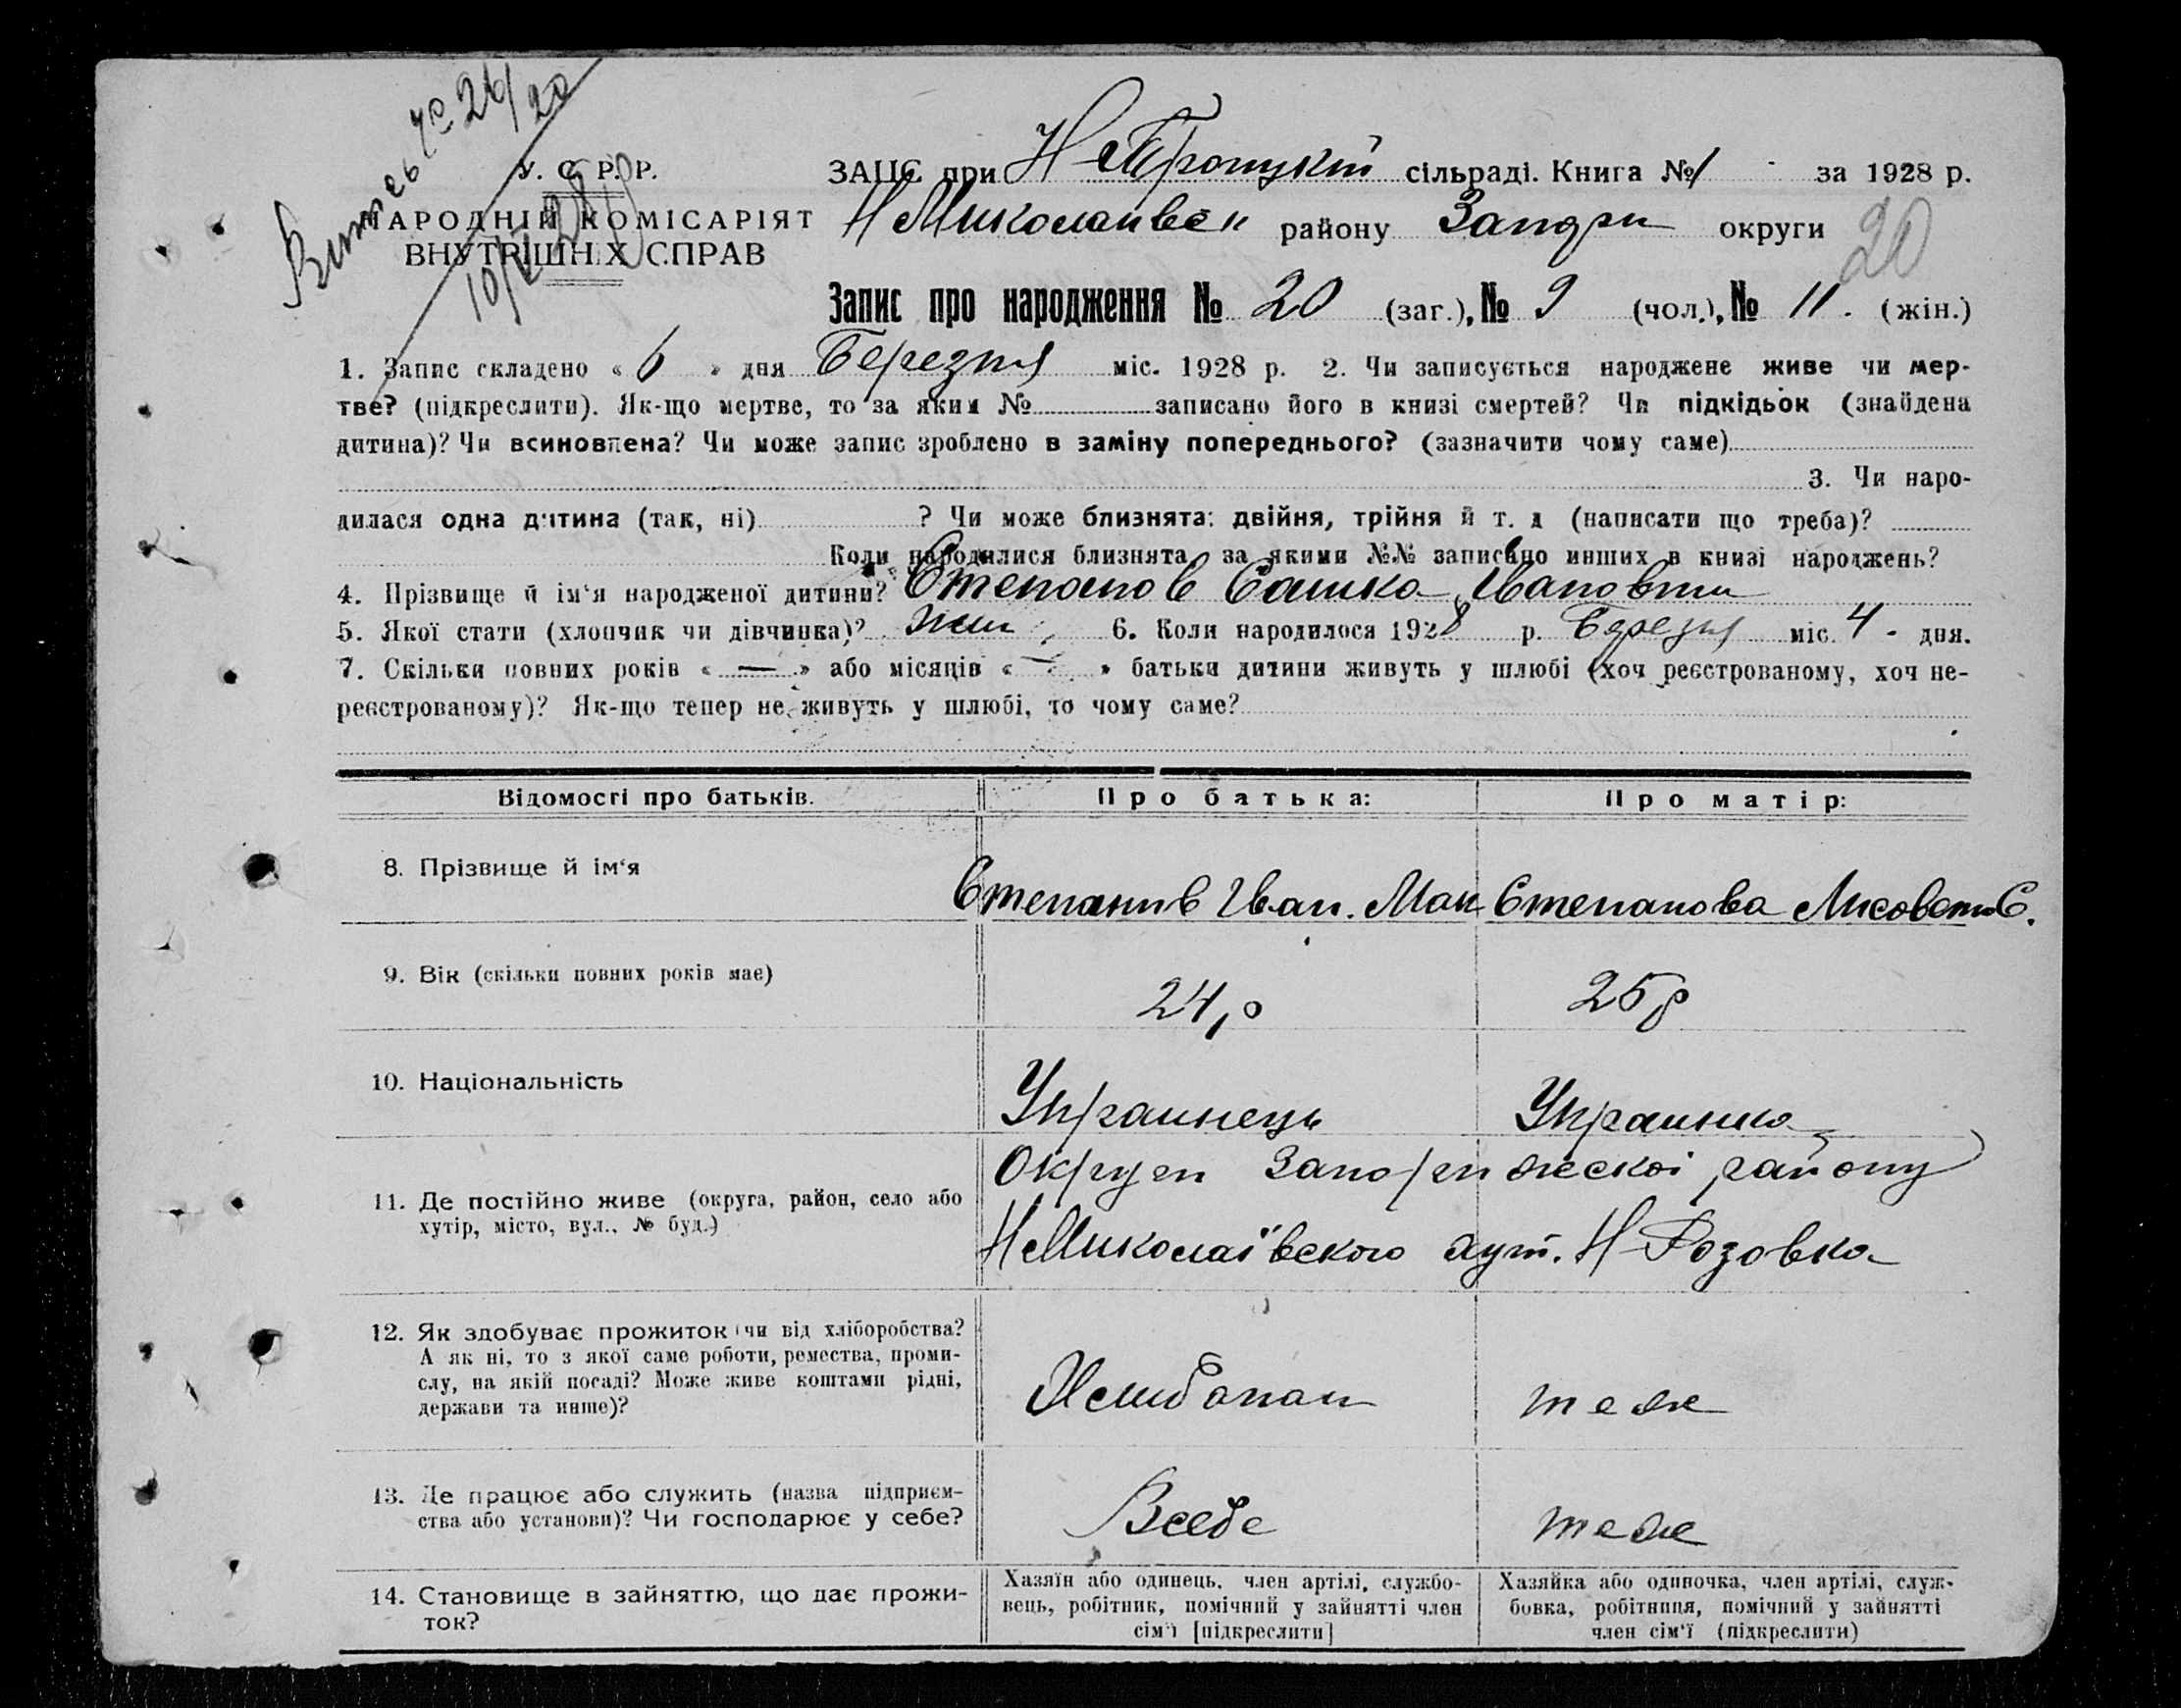 Витяг № 26/20
У. С. Р. Р.
НАРОДНІЙ КОМІСАРІЯТ
ВНУТРІШНІХ СПРАВ
ЗАЦС при Н-Троицкій сільраді. Книга № 1 за 1928 р.
Н Миколаивск району округи
20
Запис про народження № 20 (заг.), № 9 (чол.), № 11. (жін.)
1. Запис складено « 6 » дня Березня міс. 1928 р. 2. Чи записується народжене живе чи мер-
тве? (підкреслити). Як-що мертве, то за яким № записано його в книзі смертей? Чи підкідьок (знайдена
дитина)? Чи всиновлена? Чи може запис зроблено в заміну попереднього? (зазначити чому саме)
3. Чи наро-
дилася одна дитина (так, ні) ? Чи може близнята: двійня, трійня й т. д (написати що треба)?
Коли народилися близнята, за якими №№ записано инших в книзі народжень?
4. Прізвище й ім'я народженої дитини? Степанов Сашка Ивановни
5. Якої стати (хлопчик чи дівчинка)? жин 6. Коли народилося 1928 р. Березня міс. 4 - дня.
7. Скільки повних років « — » або місяців « — » батьки дитини живуть у шлюбі (хоч реєстрованому, хоч не-
реєстрованому)? Як-що тепер не живуть у шлюбі, то чому саме?
Відомості про батьків.
Про батька:
Про матір:
8. Прізвище й ім'я
Степанив Иван. Мак
Степанова Лисовети С.
9. Вік (скільки повних років має)
24 р
25 р
10. Національність
Украинець
Украинка
11. Де постійно живе (округа, район, село або
хутір, місто, вул., № буд.)
Округи Запорижскоі району
Н Миколаївского хут. Н-Розовка
12. Як здобуває прожиток (чи від хліборобства?
А як ні, то з якої саме роботи, ремества, проми-
слу, на якій посаді? Може живе коштами рідні,
держави та инше)?
Хлибопаш
теж
13. Де працює або служить (назва підприєм-
ства або установи)? Чи господарює у себе?
Всебе
теж
14. Становище в зайняттю, що дає прожи-
ток?
Хазяїн або одинець, член артілі, службо-
вець, робітник, помічний у зайнятті член
сім'ї [підкреслити]
Хазяйка або одиночка, член артілі, служ-
бовка, робітниця, помічний у зайнятті
член сім'ї (підкреслити)